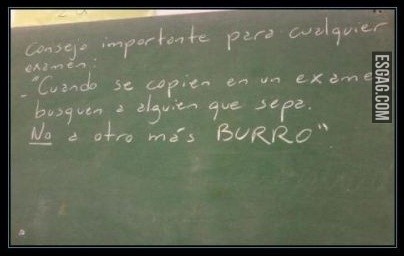 Consejo importante para cualquier
examen:
- "Cuando se copien en un exame
busquen a alguien que sepa.
No a otro más BURRO".
ESGAG.COM